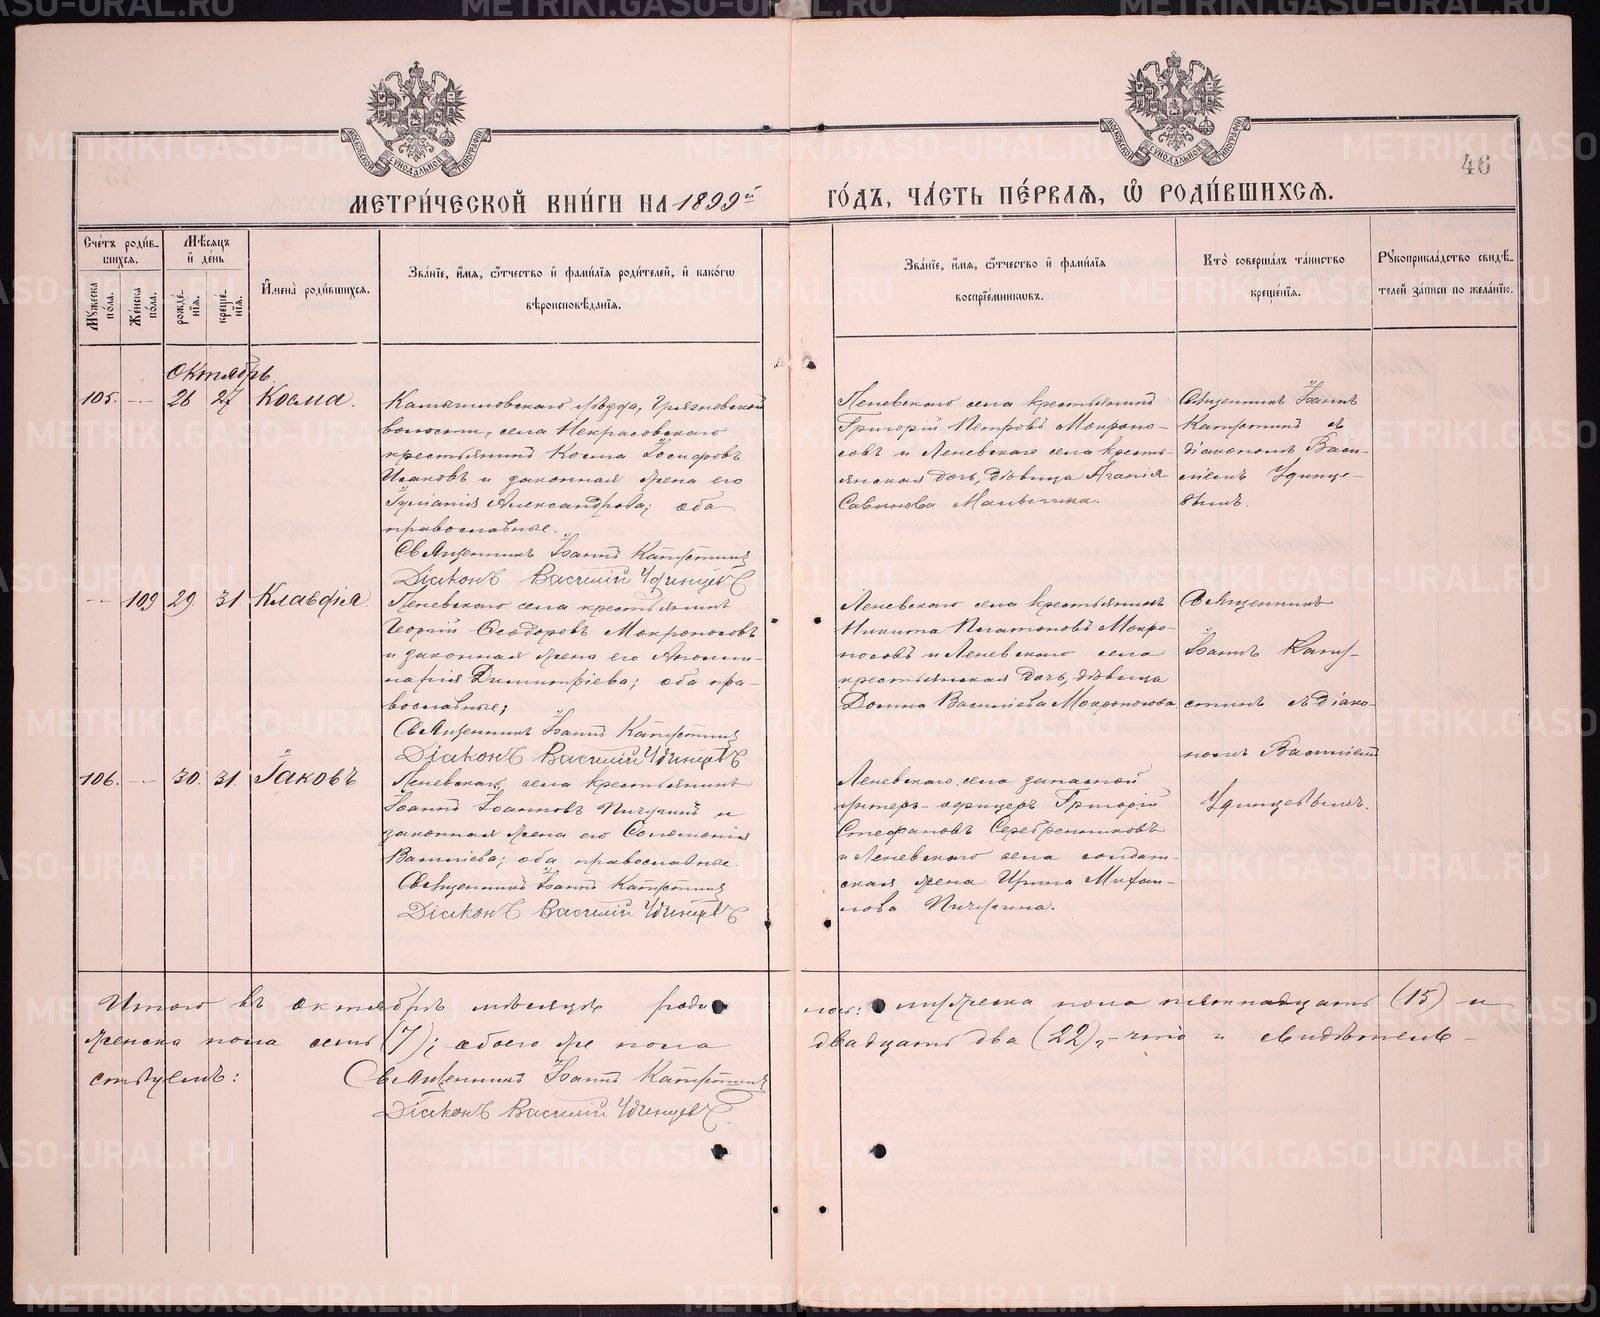 МЕТРИ́ЧЕСКОЙ КНИ́ГИ НА 1899й ГО́ДЪ, ЧА́СТЬ ПЕ́РВАЯ, Ѡ҆ РОДИ́ВШИХСЯ.
46
МОСКОВСКОЙ СѴНОДАЛЬНОЙ ТИПОГРАФІИ
МОСКОВСКОЙ СѴНОДАЛЬНОЙ ТИПОГРАФІИ
Счётъ роди́в-
шихся.
Мꙋ́жеска по́ла.
Же́нска по́ла.
Мѣ́сяцъ
и҆ де́нь
рожде́-нїѧ.
креще́-нїѧ.
И҆мена̀ роди́вшихся.
Зва́нїе, и҆́мѧ, ѻ҆́тчество и҆ фами́лїѧ роди́телей, и҆ како́гѡ
вѣроисповѣ́данїѧ.
Зва́нїе, и҆́мѧ, ѻ҆́тчество и҆ фами́лїѧ
воспрїе́мникѡвъ.
Кто̀ соверша́лъ та́инство
креще́нїѧ.
Рꙋкоприкла́дство свидѣ́-
телей за́писи по жела́нїю.
Октябрь.
105. — 26 27 Косма.
Камышловскаго уѣзда, Грязновской
волости, села Некрасовскаго
крестьянинъ Косма Іосифовъ
Исаковъ и законная жена его
Александрова; оба
православные.
Священникъ Іоаннъ Капустинъ
Діаконъ Василій Удинцевъ
Леневскаго села крестьянинъ
Григорій Петровъ Мокроно-
совъ и Леневскаго села кресть-
янская дочь, дѣвица Агапія
Савинова
Священникъ Іоаннъ
Капустинъ съ
діакономъ Васи-
ліемъ Удинце-
вымъ.
— 109 29. 31. Клавдія.
Леневскаго села крестьянинъ
Георгій Ѳеодоровъ Мокроносовъ
и законная жена его Аполли-
нарія Димитріева; оба пра-
вославные;
Священникъ Іоаннъ Капустинъ
Діаконъ Василій Удинцевъ
Леневскаго села крестьянинъ
Никита Платоновъ Мокро-
носовъ и Леневскаго села
крестьянская дочь, дѣвица
Домна Василіева Мокроносова
Священникъ
Іоаннъ Капу-
стинъ съ діако-
номъ Василіемъ
Удинцевымъ.
106. — 30. 31. Іаковъ
Леневскаго села крестьянинъ
Іоаннъ Іоанновъ Пичугинъ и
законная жена его Соломонія
Василіева; оба православные.
Священникъ Іоаннъ Капустинъ
Діаконъ Василій Удинцевъ
Леневскаго села запасной
унтеръ-офицеръ Григорій
Стефановъ Серебренниковъ
и Леневскаго села солдат-
ская жена Ирина Михаи-
лова Пичугина.
Итого въ октябрѣ мѣсяцѣ роди-лось: мужеска пола пятнадцать (15) и
женска пола семь (7); обоего же пола двадцать два (22), что и свидѣтель-
ствуемъ: Священникъ Іоаннъ Капустинъ
Діаконъ Василій Удинцевъ.
METRIKI.GASO-URAL.RU